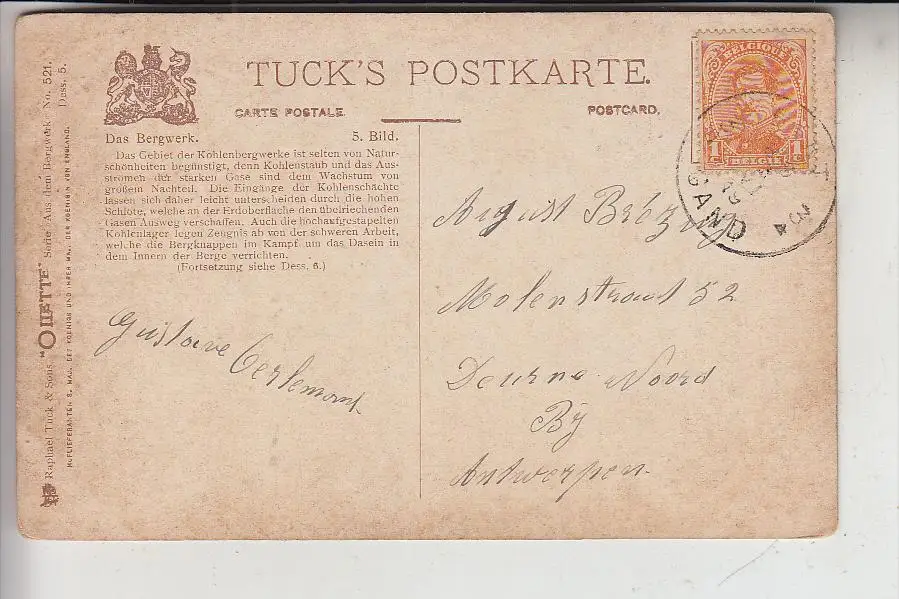 TUCK'S POSTKARTE.
CARTE POSTALE.
POSTCARD.
Das Bergwerk. 5. Bild.
Das Gebiet der Kohlenbergwerke ist selten von Natur-
schönheiten begünstigt, denn Kohlenstaub und das Aus-
strömen der starken Gase sind dem Wachstum von
großem Nachteil. Die Eingänge der Kohlenschächte
lassen sich daher leicht unterscheiden durch die hohen
Schlote, welche an der Erdoberfläche den übelriechenden
Gasen Ausweg verschaffen. Auch die hochaufgestapelten
Kohlenlager legen Zeugnis ab von der schweren Arbeit,
welche die Bergknappen im Kampf um das Dasein in
dem Innern der Berge verrichten.
(Fortsetzung siehe Dess. 6.)
Gustave Oerlemont
Raphael Tuck & Sons "OILETTE" Serie "Aus dem Bergwerk" No. 521.
Dess. 5.
HOFLIEFERANTEN S. MAJ. DES KOENIGS UND IHRER MAJ. DER KOENIGIN VON ENGLAND.
BELGIQUE
1c 1c
BELGIË
GAND
August
Molenstraat 52
Deurne Noord
By
Antwerpen